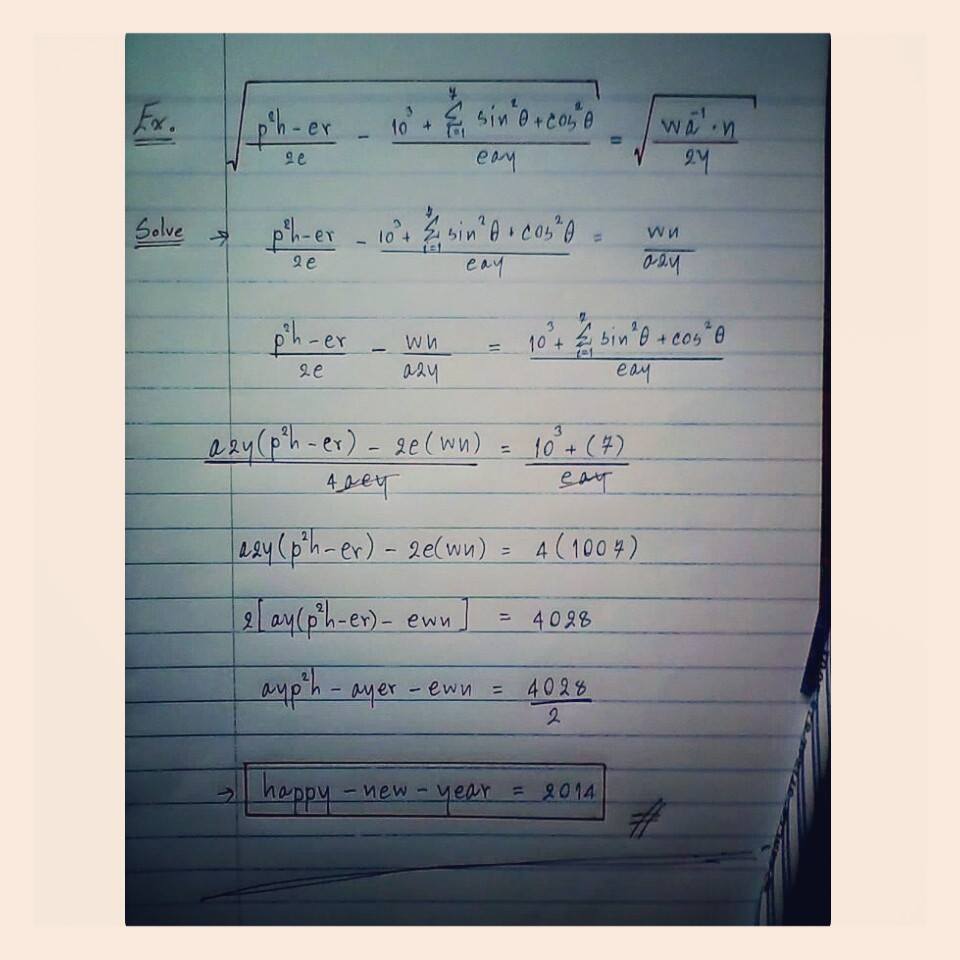 Ex. √((p²h - er)/2e - (10³ + Σ_{i=1}^{7} sin²θ + cos²θ)/eay) = √((wa⁻¹·n)/2y)
Solve → (p²h - er)/2e - (10³ + Σ_{i=1}^{7} sin²θ + cos²θ)/eay = wn/a2y
(p²h - er)/2e - wn/a2y = (10³ + Σ_{i=1}^{7} sin²θ + cos²θ)/eay
(a2y(p²h - er) - 2e(wn))/4aey = (10³ + (7))/eay
a2y(p²h - er) - 2e(wn) = 4(1007)
2[ay(p²h - er) - ewn] = 4028
ayp²h - ayer - ewn = 4028/2
→ happy - new - year = 2014 #